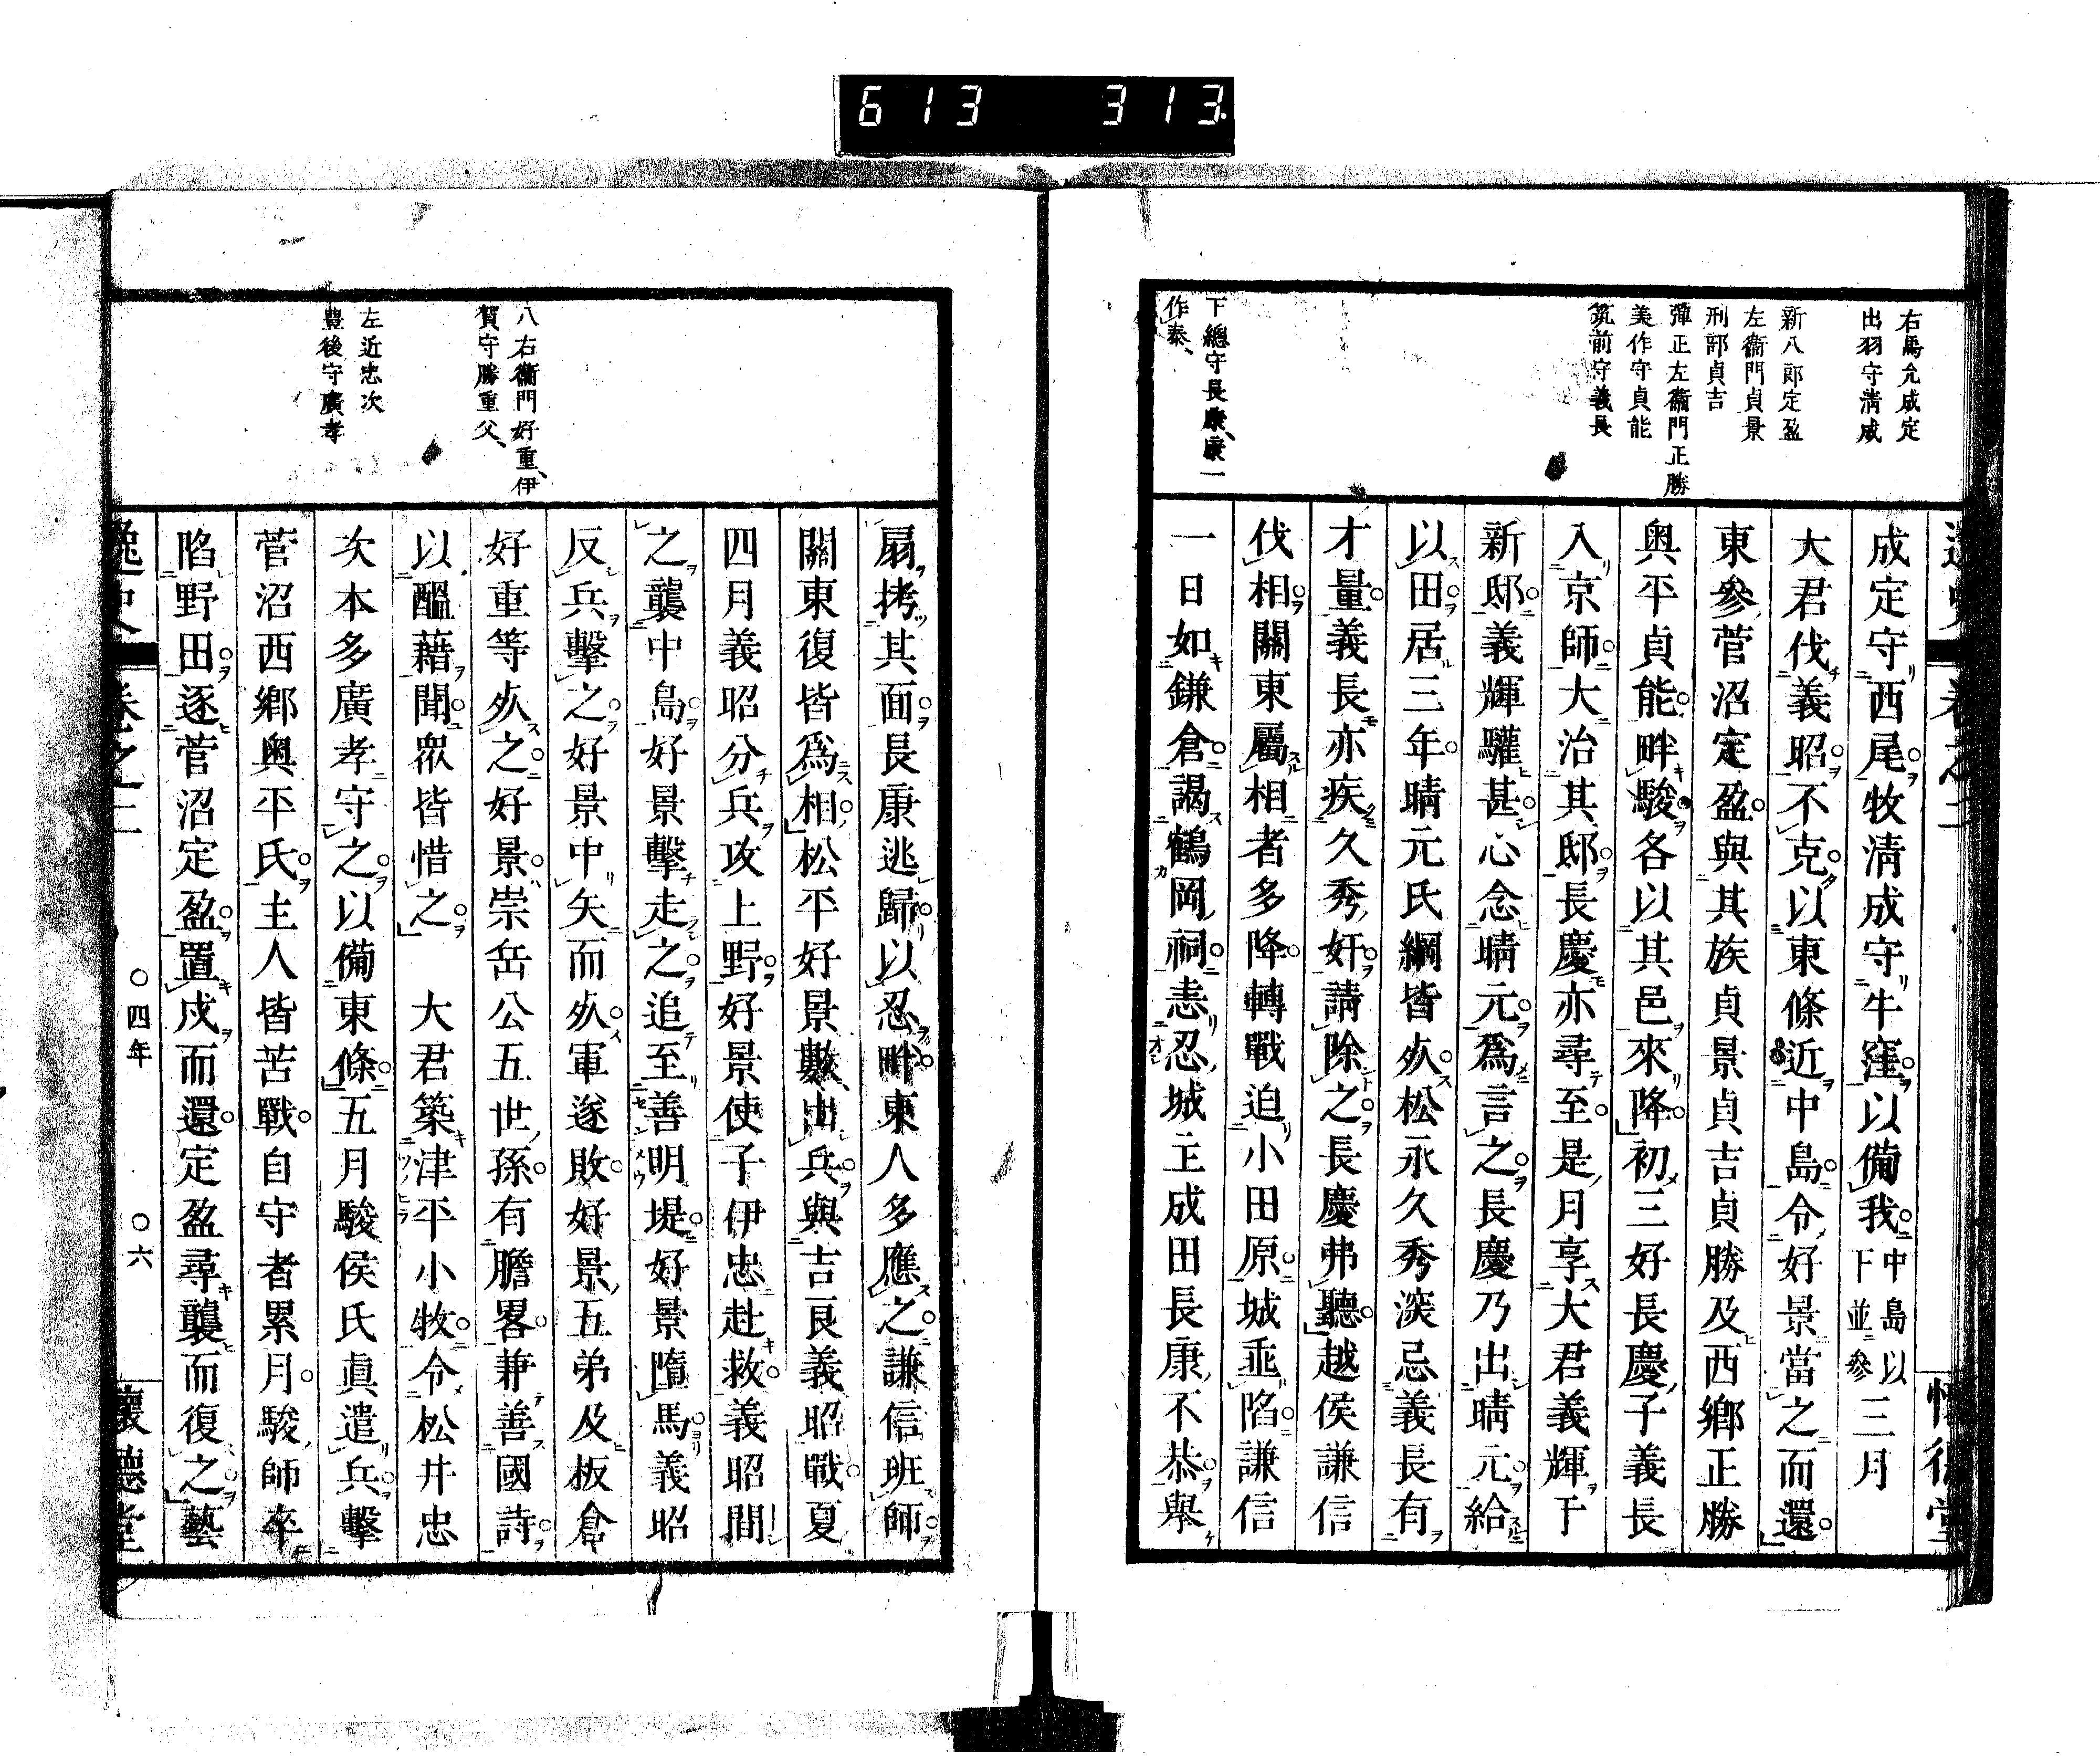 613 313.
右馬允成定
出羽守淸成
新八郎定盈
左衞門貞景
刑部貞吉
彈正左衞門正勝
美作守貞能
筑前守義長
下總守長康、康一
作泰、
成定守西尾牧淸成守牛窪以備我中島以下並參三月
大君伐義昭不克以東條近中島令好景當之而還
東參菅沼定盈與其族貞景貞吉貞勝及西鄉正勝
奧平貞能畔駿各以其邑來降初三好長慶子義長
入京師大治其邸長慶亦尋至是月享大君義輝于
新邸義輝驩甚心念晴元爲言之長慶乃出晴元給
以田居三年晴元氏綱皆歿松永久秀深忌義長有
才量義長亦疾久秀奸請除之長慶弗聽越侯謙信
伐相關東屬相者多降轉戰迫小田原城垂陷謙信
一日如鎌倉謁鶴岡祠恚忍城主成田長康不恭舉
扇拷其面長康逃歸以忍畔東人多應之謙信班師
關東復皆爲相松平好景數出兵與吉良義昭戰夏
四月義昭分兵攻上野好景使子伊忠赴救義昭間
之襲中島好景擊走之追至善明堤好景墮馬義昭
反兵擊之好景中矢而歿軍遂敗好景五弟及板倉
好重等歿之好景崇岳公五世孫有膽畧兼善國詩
以醞藉聞眾皆惜之 大君築津平小牧令松井忠
次本多廣孝守之以備東條五月駿侯氏眞遣兵擊
菅沼西鄉奧平氏主人皆苦戰自守者累月駿師卒
陷野田逐菅沼定盈置戍而還定盈尋襲而復之藝
八右衞門好重、伊
賀守勝重父、
左近忠次
豊後守廣孝
逸史 卷之二 〇四年 〇六 懷德堂